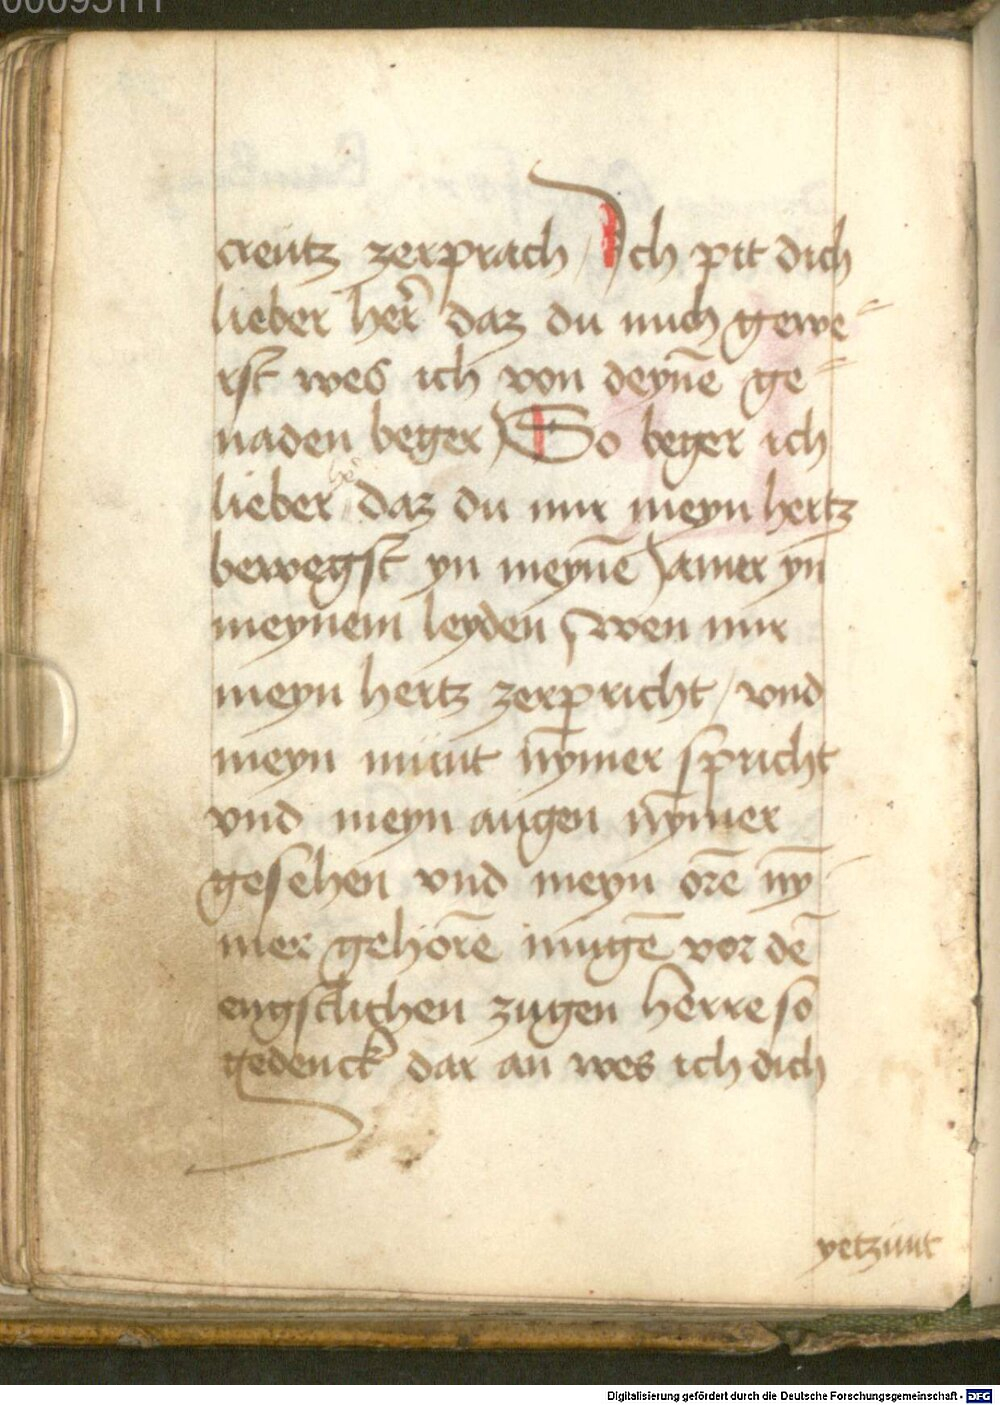 creutz zerprach / Ich pit dich
lieber her̄ daz du mich gewe-
rst wes ich von deyn̄e ge-
naden beger So beger ich
lieber he͛ daz du mir meyn hertz
bewegst yn meyn̄e Jamer yn
meynem leyden wen mir
meyn hertz zerpricht / vnd
meyn munt nȳmer spricht
vnd meyn augen nȳmer
gesehen vnd meyn orē nȳ-
mer gehorē mugē vor dē
engstlichen zugen herre so
gedenck dar an wes ich dich
yetzunt
Digitalisierung gefördert durch die Deutsche Forschungsgemeinschaft - DFG